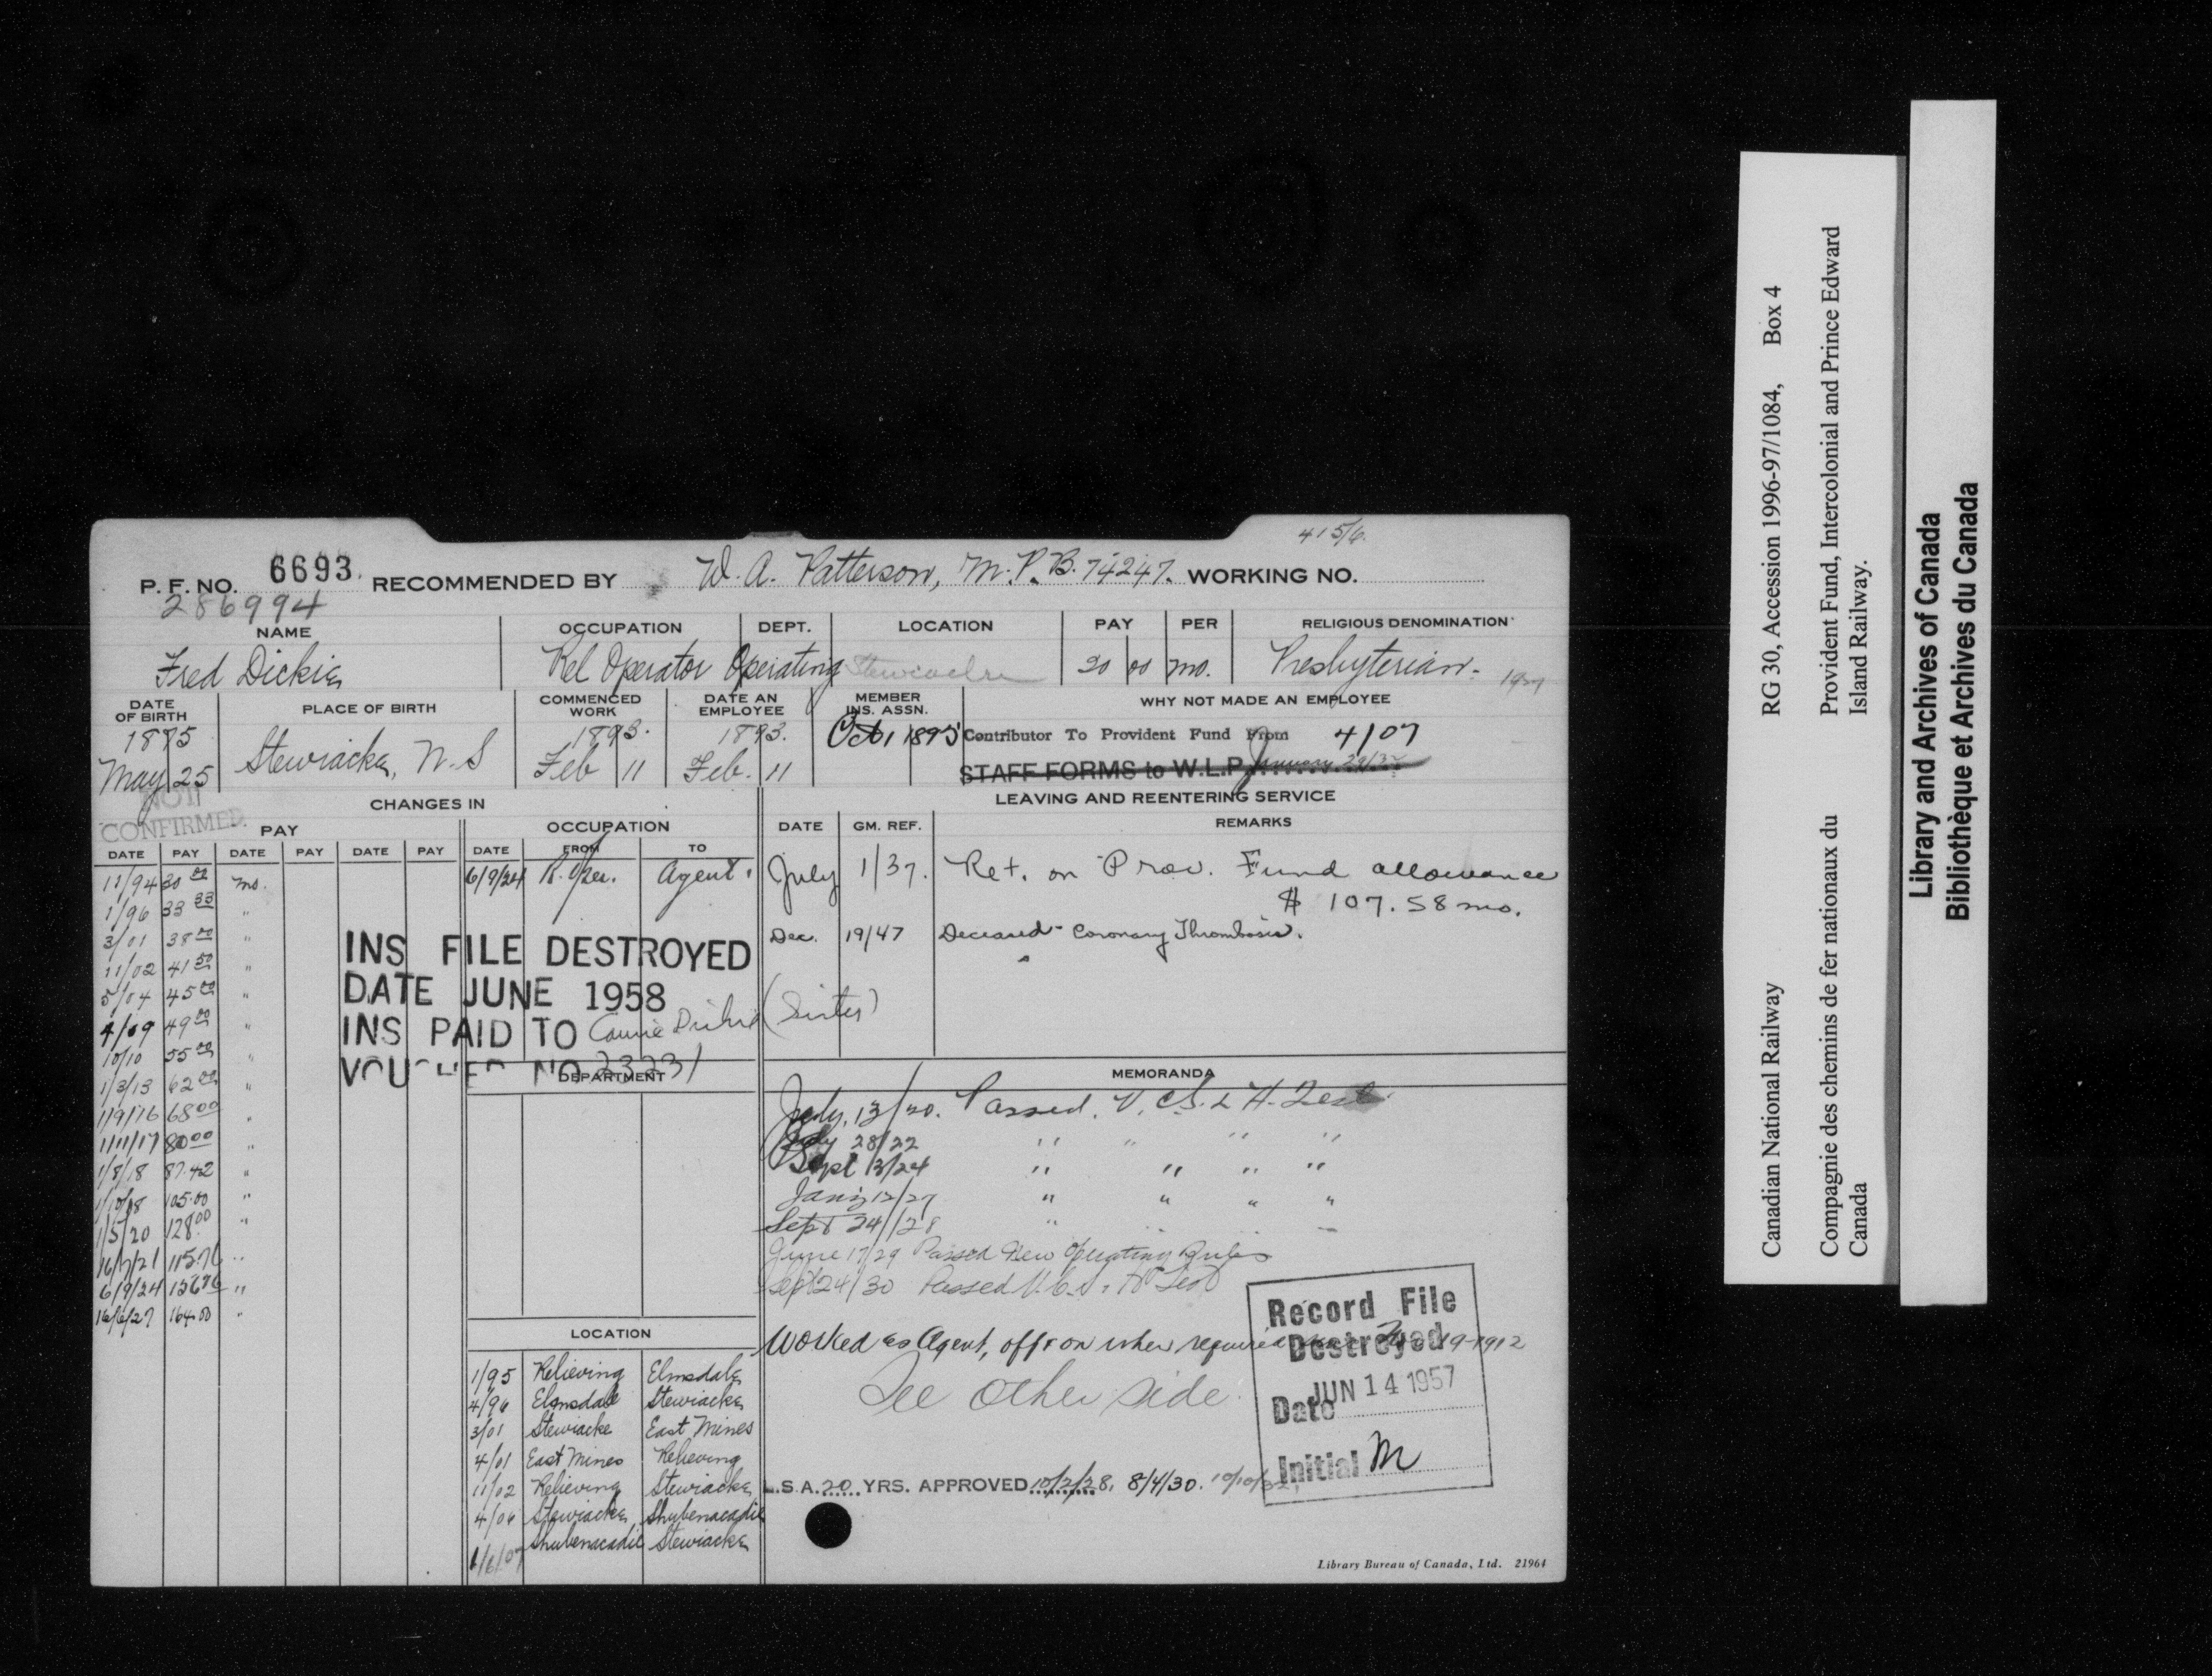 415/6.
P. F. NO. 6693. RECOMMENDED BY W. A. Patterson, M.P.B. 74247. WORKING NO.
286994
NAME OCCUPATION DEPT. LOCATION PAY PER RELIGIOUS DENOMINATION
Fred Dickie Rel Operator Operating Stewiacke 20 00 mo. Presbyterian.
DATE OF BIRTH PLACE OF BIRTH COMMENCED WORK DATE AN EMPLOYEE MEMBER INS. ASSN. WHY NOT MADE AN EMPLOYEE
1875 1893. 1893. Oct 1 1895 Contributor To Provident Fund From 4/07
May 25 Stewiacke, N.S Feb 11 Feb. 11 STAFF FORMS to W.L.P.
NOT CONFIRMED
CHANGES IN
PAY OCCUPATION
DATE PAY DATE PAY DATE PAY DATE FROM TO
11/94 30 00 mo. 6/9/24 R. Oper. Agent.
1/96 33 33 "
3/01 38 00 "
11/02 41 50 "
5/04 45 00 "
4/09 49 00 "
10/10 55 00 "
1/3/13 62 00 "
1/9/16 68 00 "
1/11/17 80 00 "
1/8/18 87.42 "
1/10/18 105.00 "
1/5/20 128.00 "
16/7/21 115.76 "
6/9/24 136 76 "
16/6/27 164.00 "
INS FILE DESTROYED
DATE JUNE 1958
INS PAID TO Dickie (Sister)
VOUCHER NO 23231
DEPARTMENT
LOCATION
1/95 Relieving Elmsdale
4/96 Elmsdale Stewiacke
3/01 Stewiacke East Mines
4/01 East Mines Relieving
11/02 Relieving Stewiacke
4/06 Stewiacke Shubenacadie
1/6/07 Shubenacadie Stewiacke
LEAVING AND REENTERING SERVICE
DATE GM. REF. REMARKS
July 1/37. Ret. on Prov. Fund allowance
$ 107.58 mo.
Dec. 19/47 Deceased - Coronary Thrombosis.
MEMORANDA
July, 13/20. Passed. V. C.S. & H. Test.
July 28/22 " " " "
Sept 13/24 " " " "
Jan'y 12/27 " " " "
Sept 24/28 "
June 17/29 Passed New Operating Rules
Sept 24/30 Passed V.C.S. & H Test
Worked as Agent, off & on when required 19-1912
See other side.
L.S.A. 20 YRS. APPROVED 10/2/28, 8/4/30.
Record File
Destroyed
Date JUN 14 1957
Initial M
Library Bureau of Canada, Ltd. 21964
Canadian National Railway RG 30, Accession 1996-97/1084, Box 4
Compagnie des chemins de fer nationaux du Canada
Provident Fund, Intercolonial and Prince Edward Island Railway.
Library and Archives of Canada
Bibliothèque et Archives du Canada